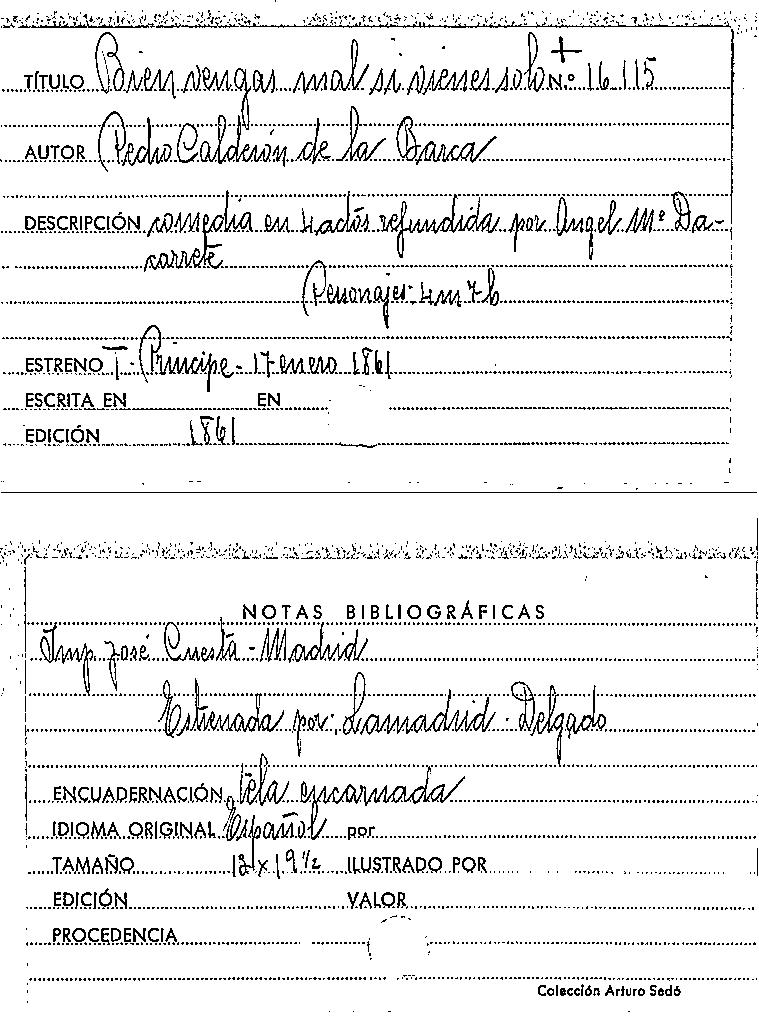 +
TÍTULO Bien vengas mal si vienes solo N.º 16.115
AUTOR Pedro Calderón de la Barca
DESCRIPCIÓN comedia en 4 actos refundida por Angel Mª Da-
carrete
Personajes: 4m 7h
ESTRENO T- Principe - 17 enero 1861
ESCRITA EN EN
EDICIÓN 1861
NOTAS BIBLIOGRÁFICAS
Imp. José Cuesta - Madrid
Estrenada por: Lamadrid - Delgado
ENCUADERNACIÓN tela encarnada
IDIOMA ORIGINAL Español por
TAMAÑO 12 x 19 1/2 ILUSTRADO POR
EDICIÓN VALOR
PROCEDENCIA
Colección Arturo Sedó